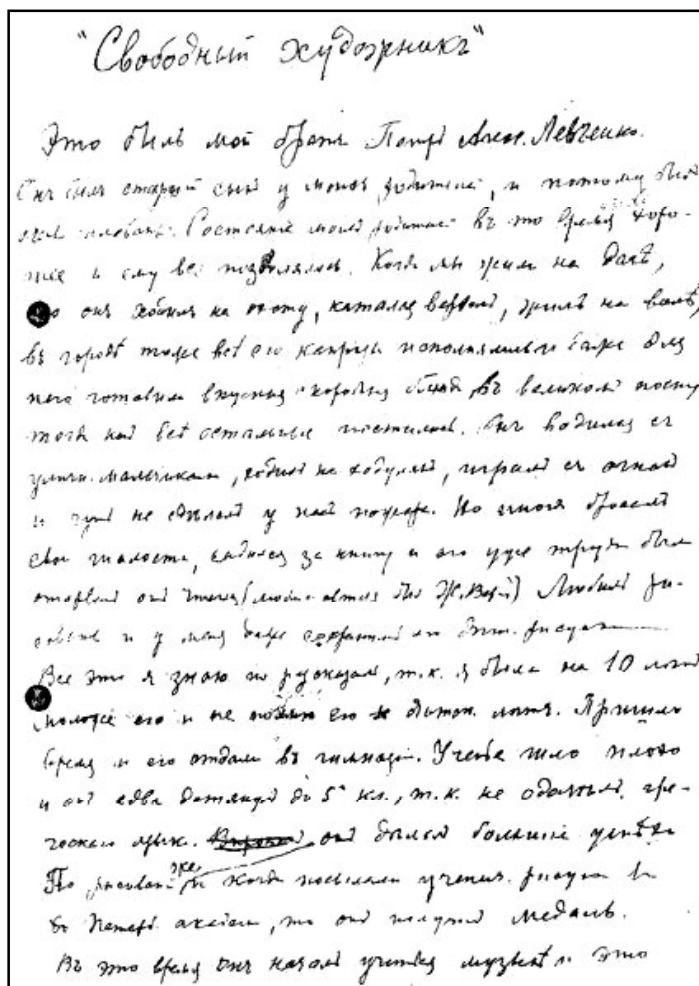 "Свободный художникъ"
Это былъ мой братъ Петръ Алек. Левченко.
Онъ былъ старшій сынъ у моихъ родителей, и потому былъ
Состояніе моихъ родителей въ то время хоро-
шее и ему все позволялось. Когда мы жили на дачѣ,
то онъ ходилъ на охоту, катался верхомъ, жилъ на волѣ,
въ городѣ тоже всѣ его капризы исполнялись и даже для
него готовили вкусныя скоромныя блюда въ великомъ посту
тогда какъ всѣ остальные постились. Онъ водился съ
уличн. мальчиками, ходилъ на ходуляхъ, игралъ съ огнемъ
и чуть не сдѣлалъ у насъ пожара. Но иногда бросалъ
свои шалости, садился за книгу и его уже трудно было
оторвать отъ чтенія (любим. авторъ былъ Ж. Вернъ) Любилъ ри-
совать и у меня даже сохранились его рисун
Все это я знаю по разсказам, т.к. я была на 10 лѣтъ
моложе его и не помню его дѣтск. лѣтъ. Пришло
время и его отдали въ гимназію. Ученье шло плохо
и онъ едва дотянулъ до 5 кл., т.к. не одолѣлъ гре-
ческаго языка. онъ дѣлалъ большіе успѣхи
По рисован. же и когда посылали ученич. рисунки въ
Петерб. академ., то онъ получилъ медаль.
Въ это время онъ началъ учиться музыкѣ и это